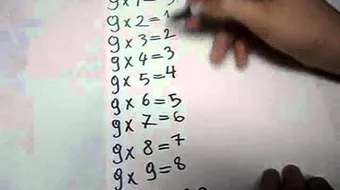 9 x 2 = 1
9 x 3 = 2
9 x 4 = 3
9 x 5 = 4
9 x 6 = 5
9 x 7 = 6
9 x 8 = 7
9 x 9 = 8